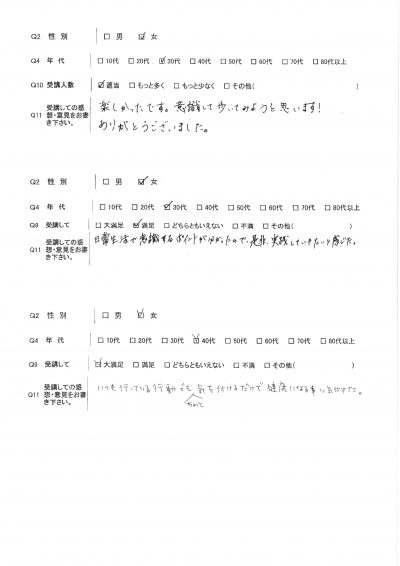 Q2 性 別 □ 男 ☑ 女
Q4 年 代 □ 10代 □ 20代 ☑ 30代 □ 40代 □ 50代 □ 60代 □ 70代 □ 80代以上
Q10 受講人数 ☑ 適当 □ もっと多く □ もっと少なく □ その他( )
Q11 受講しての感想・意見をお書き下さい。
楽しかったです。意識して歩いてみようと思います!
ありがとうございました。
Q2 性 別 □ 男 ☑ 女
Q4 年 代 □ 10代 □ 20代 ☑ 30代 □ 40代 □ 50代 □ 60代 □ 70代 □ 80代以上
Q9 受講して □ 大満足 ☑ 満足 □ どちらともいえない □ 不満 □ その他( )
Q11 受講しての感想・意見をお書き下さい。
日常生活で意識するポイントが分かったので、是非、実践していきたいと感じた。
Q2 性 別 □ 男 ☑ 女
Q4 年 代 □ 10代 □ 20代 □ 30代 ☑ 40代 □ 50代 □ 60代 □ 70代 □ 80代以上
Q9 受講して ☑ 大満足 □ 満足 □ どちらともいえない □ 不満 □ その他( )
Q11 受講しての感想・意見をお書き下さい。
いつも行っている行動でも気を付けるだけで健康になる事に気付けた。